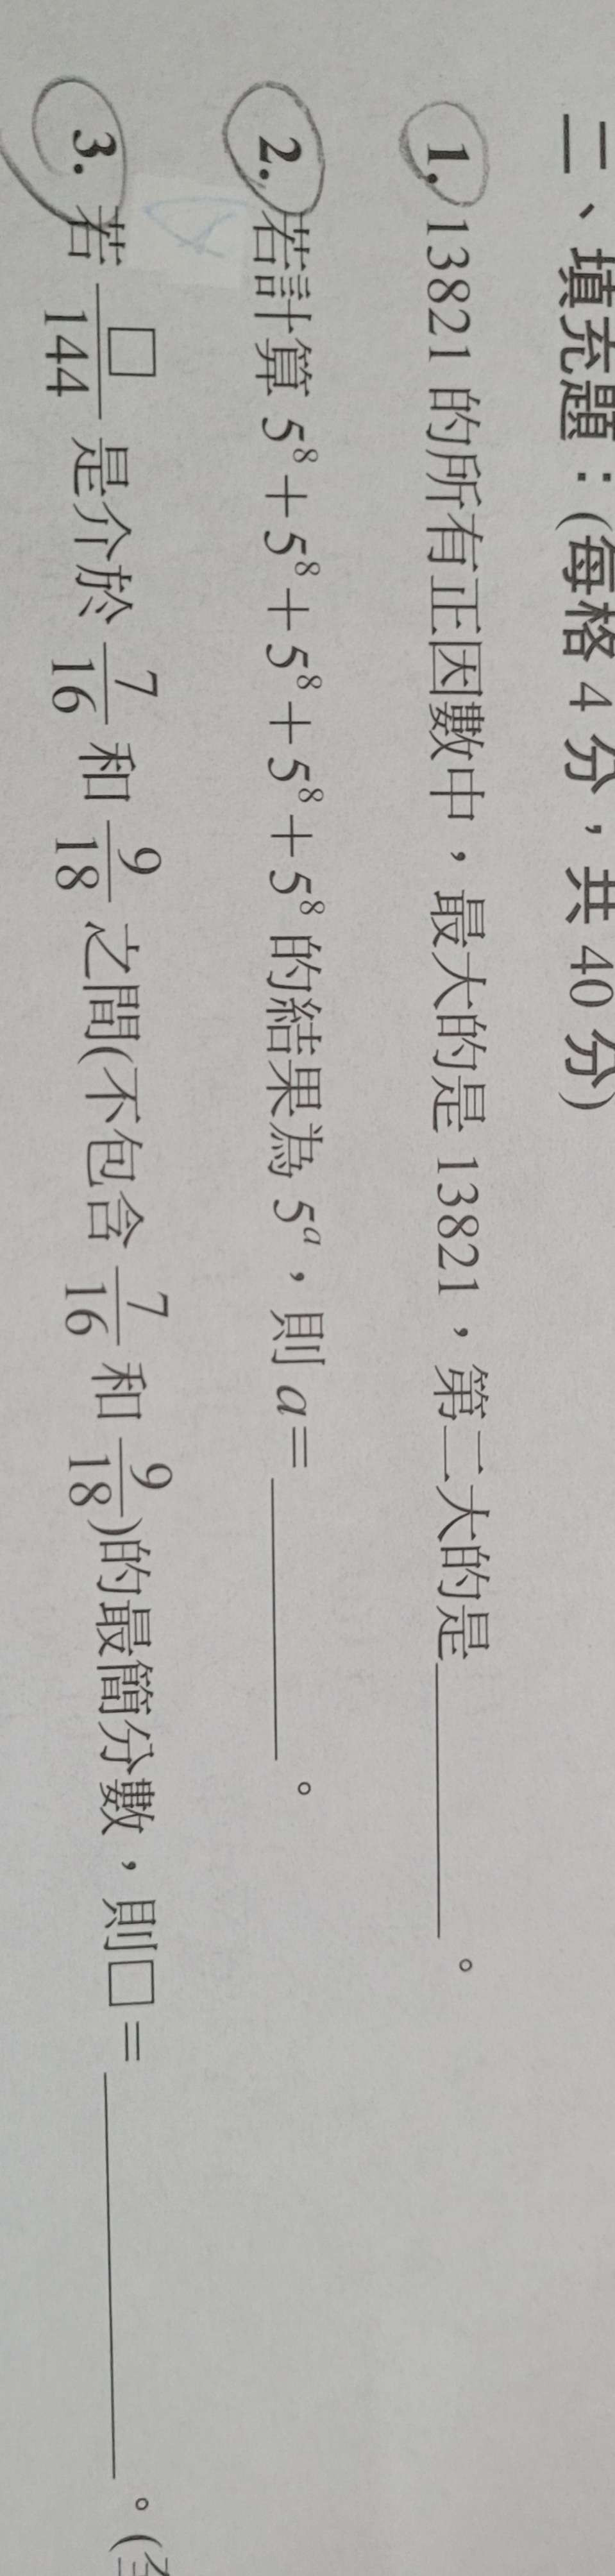 二、填充題：(每格 4 分，共 40 分)
1. 13821 的所有正因數中，最大的是 13821，第二大的是________。
2. 若計算 5⁸＋5⁸＋5⁸＋5⁸＋5⁸ 的結果為 5ᵃ，則 a＝________。
3. 若 □/144 是介於 7/16 和 9/18 之間(不包含 7/16 和 9/18)的最簡分數，則□＝________。(